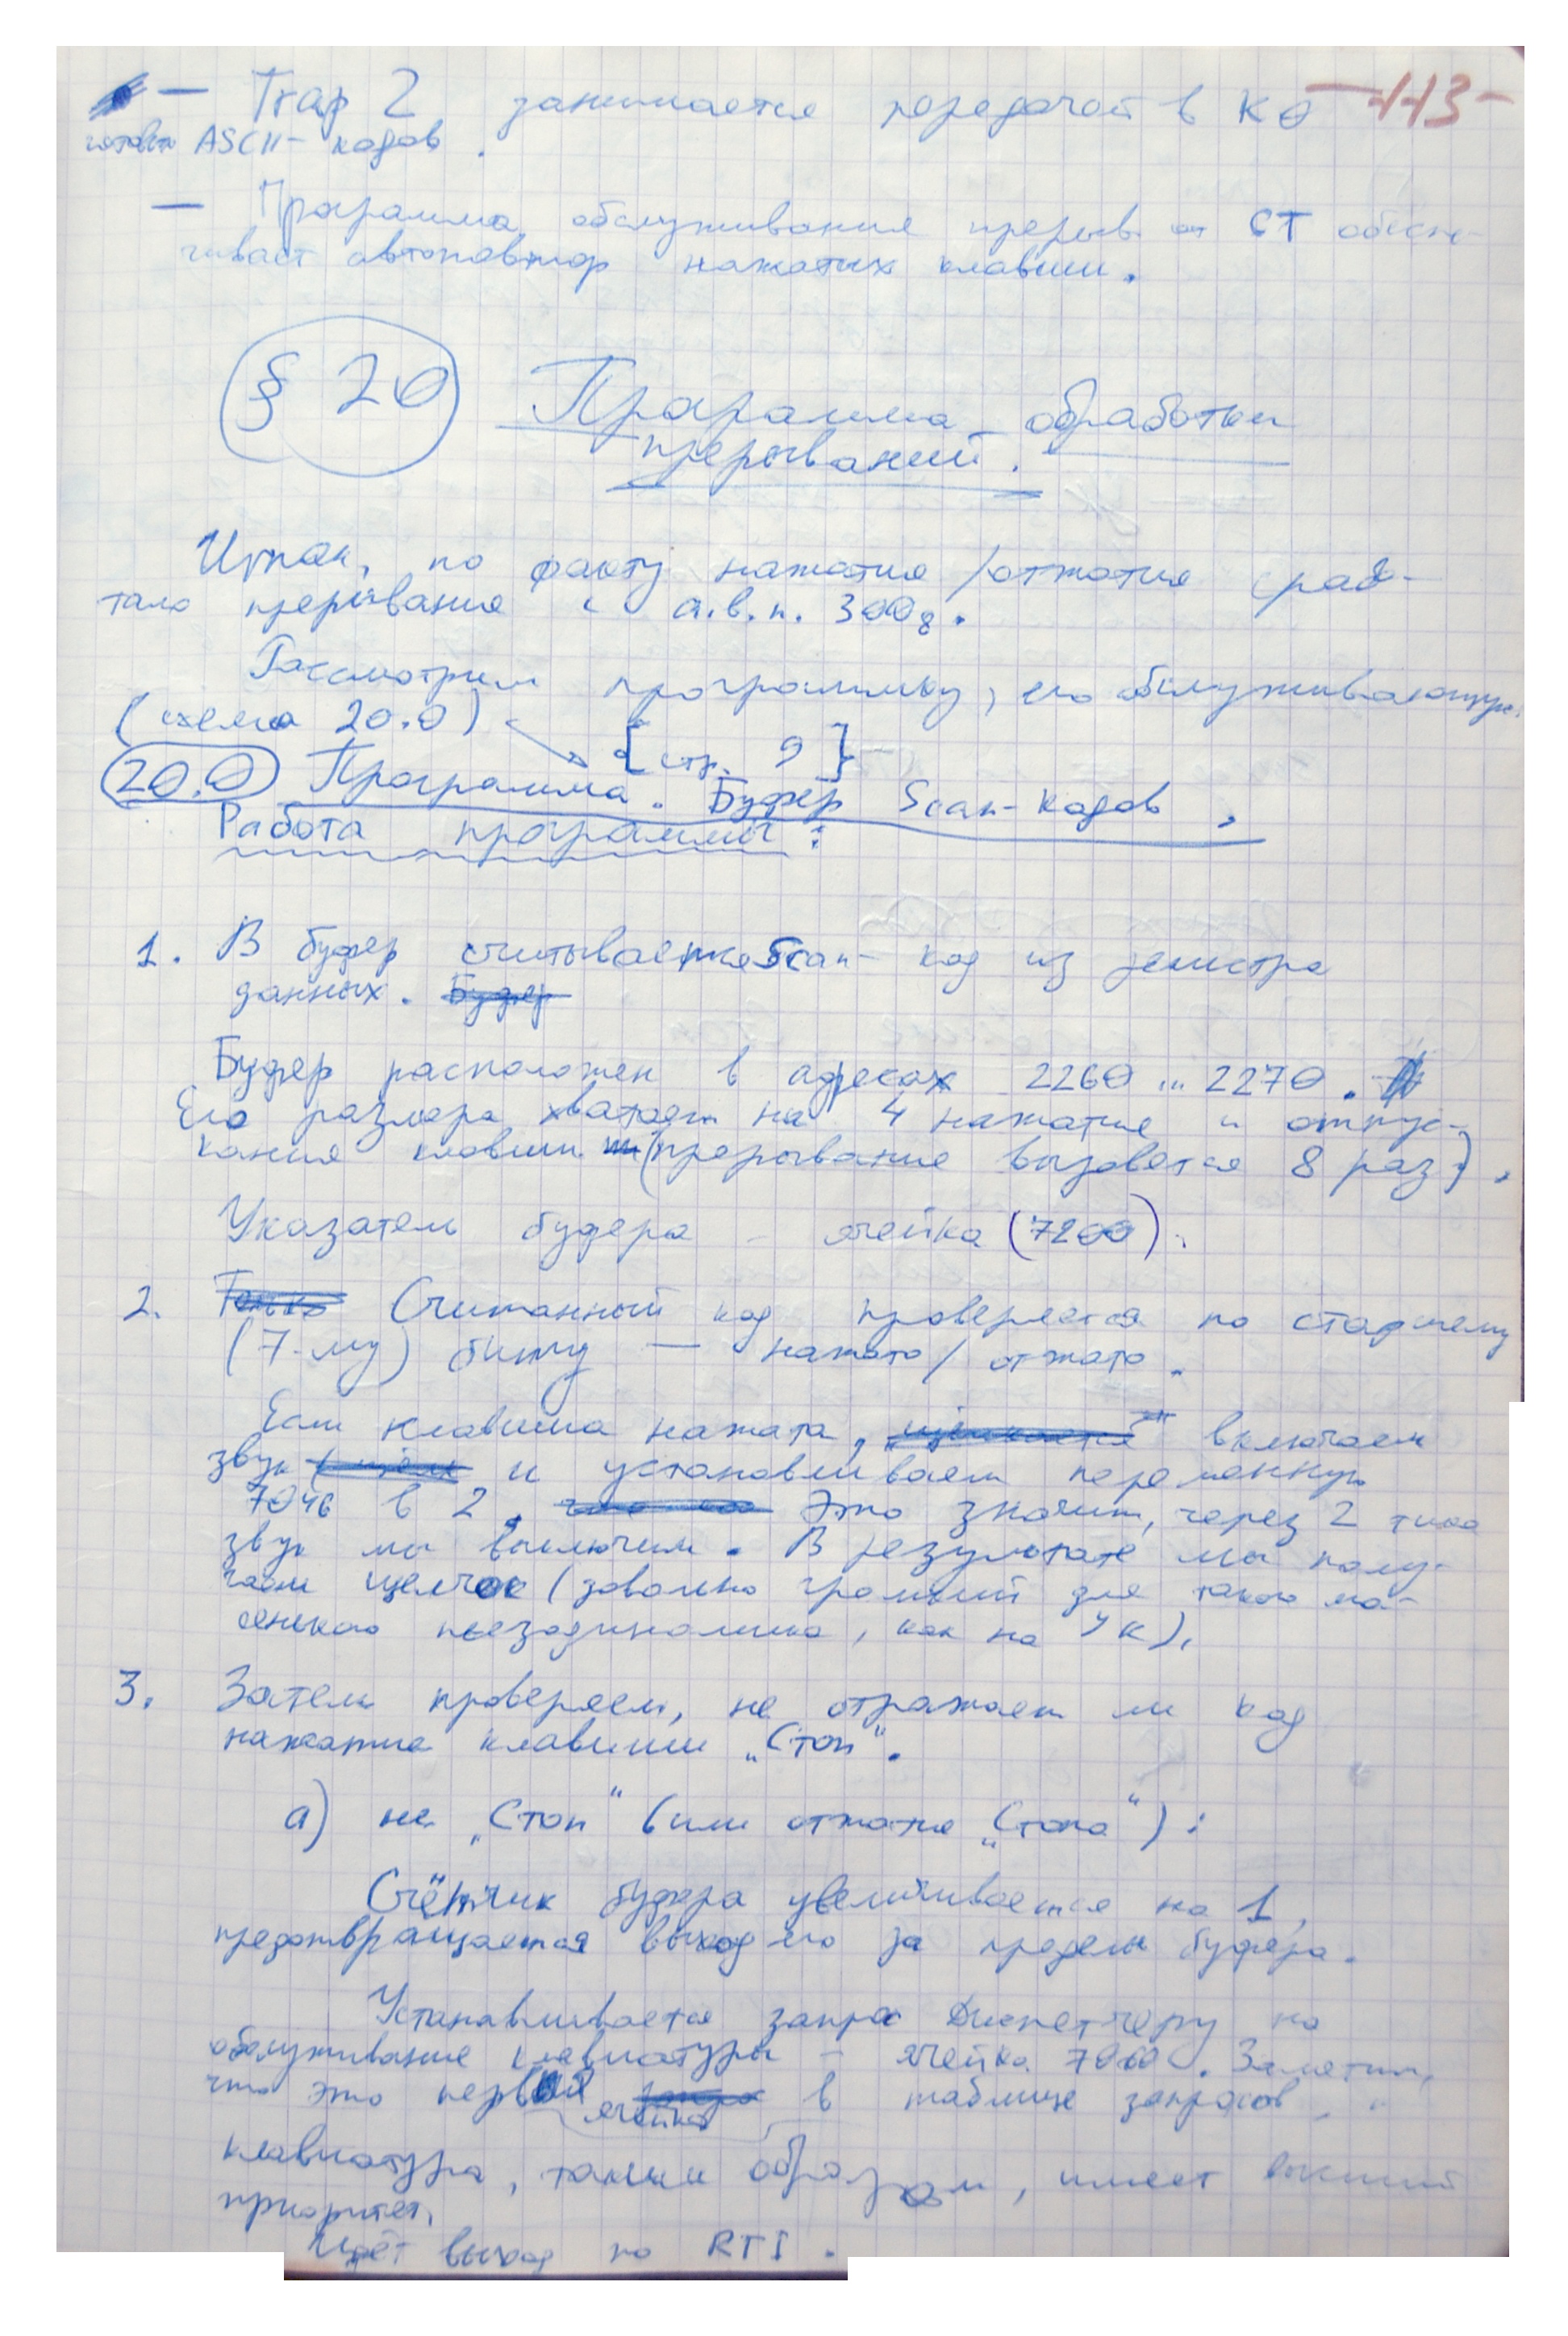 — Trap 2 занимается передачей в К0 -113-
готовых ASCII- кодов.
— Программа обслуживания прерыв. от СТ обеспе-
чивает автоповтор нажатых клавиш.
§ 20 Программа обработки
прерываний.
Итак, по факту нажатия /отжатия сраб-
тало прерывание с а.в.п. 300₈.
Рассмотрим программку, его обслуживающую.
(схема 20.0)
[стр. 9]
20.0 Программа. Буфер Scan-кодов,
Работа программы:
1. В буфер считывается Scan- код из регистра
данных. Буфер
Буфер расположен в адресах 2260 ... 2270.
Его размера хватает на 4 нажатия и отпус-
кания клавиш (прерывание вызовется 8 раз).
Указатель буфера – ячейка (7200).
2. Считанный код проверяется по старшему
(7-му) биту — нажато/ отжато.
Если клавиша нажата, включаем
звук и устанавливаем переменную
7046 в 2. Это значит, через 2 тика
звук мы выключим. В результате мы полу-
чаем щелчок (довольно громкий для такого ма-
ленького пьезодинамика, как на УК).
3. Затем проверяем, не отражает ли код
нажатие клавиши „Стоп".
а) не „Стоп" (или отжатие „Стопа"):
Счётчик буфера увеличивается на 1,
предотвращается выход его за пределы буфера.
Устанавливается запрос Диспетчеру на
обслуживание клавиатуры – ячейка 7060. Заметим,
что это первая ячейка в таблице запросов, и
клавиатура, таким образом, имеет высший
приоритет.
Идёт выход по RTI.